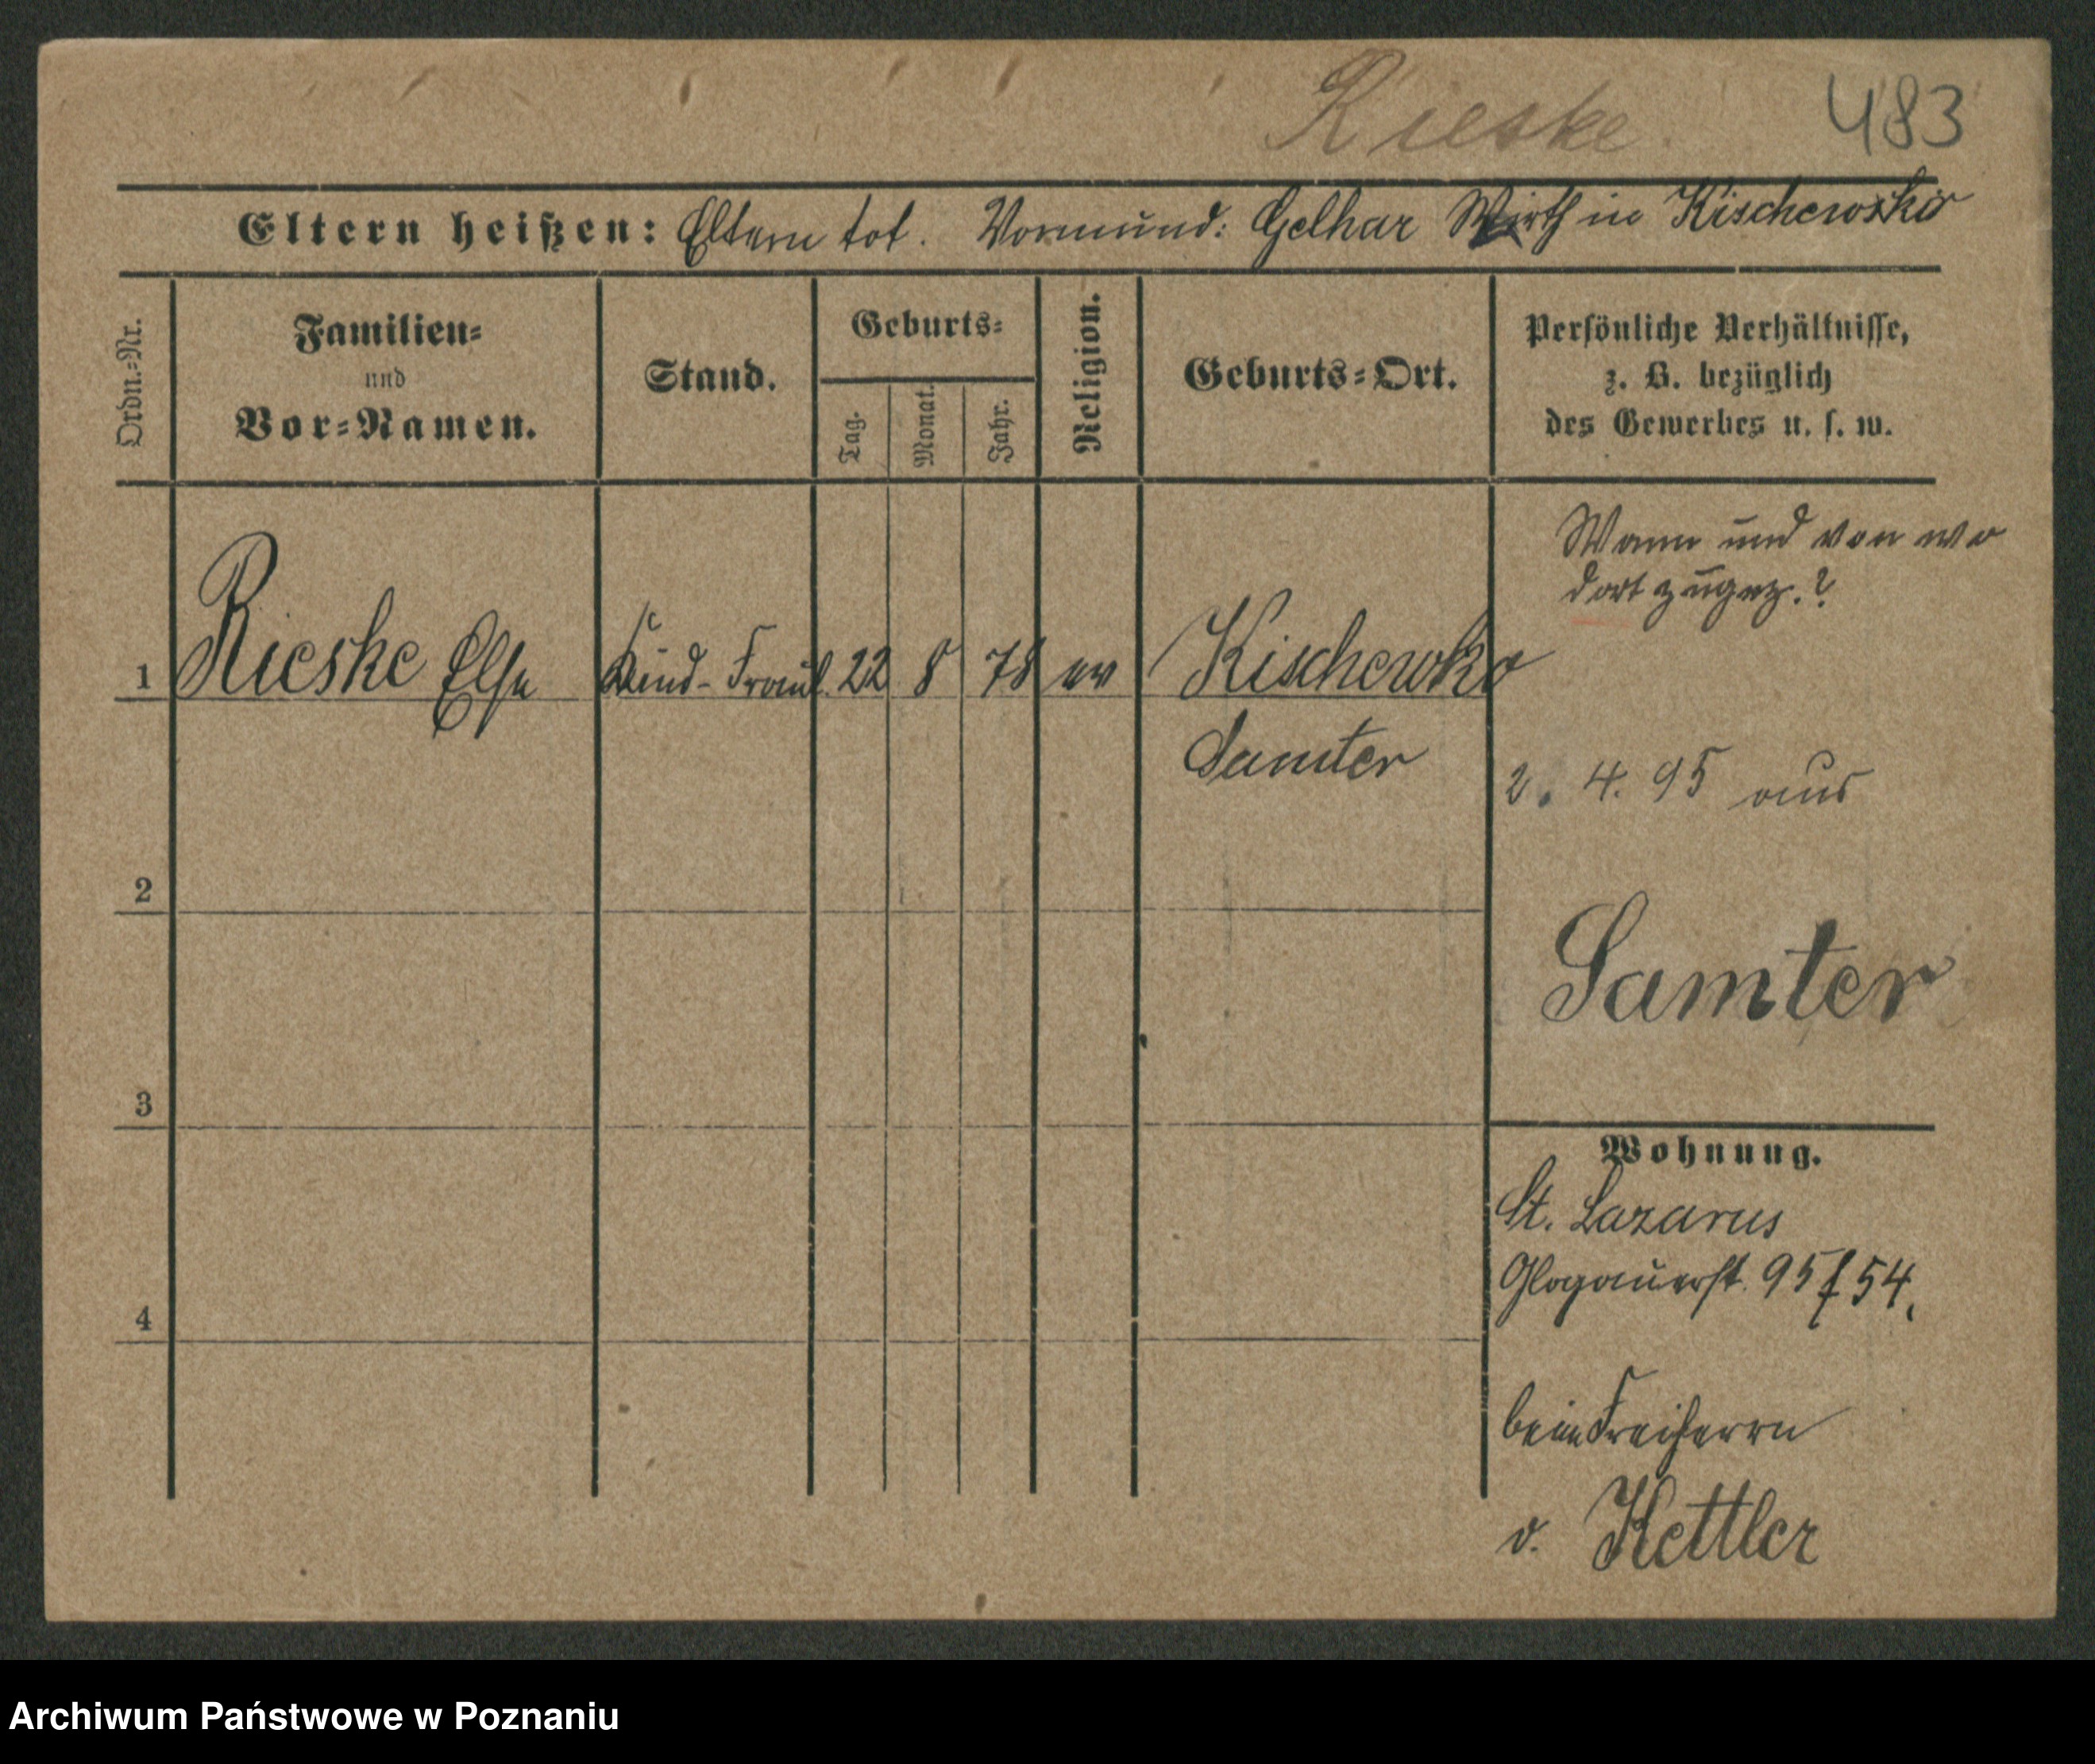 Rieske 483
Eltern heißen: Eltern tot. Vormund: Gelhar Wirth in Kischewsko
Ordn.-Nr.
Familien-
und
Vor-Namen.
Stand.
Geburts-
Tag.
Monat.
Jahr.
Religion.
Geburts-Ort.
Persönliche Verhältnisse,
z. B. bezüglich
des Gewerbes u. s. w.
Wann und von wo
dort zugez.?
1 Rieske Else Kind-Fräul. 22 8 78 ev Kischewko
Samter
2. 4. 95 aus
2
Samter
3
Wohnung.
St. Lazarus
Glogauerst. 95/54.
4
beim Freiherrn
v. Kettler
Archiwum Państwowe w Poznaniu